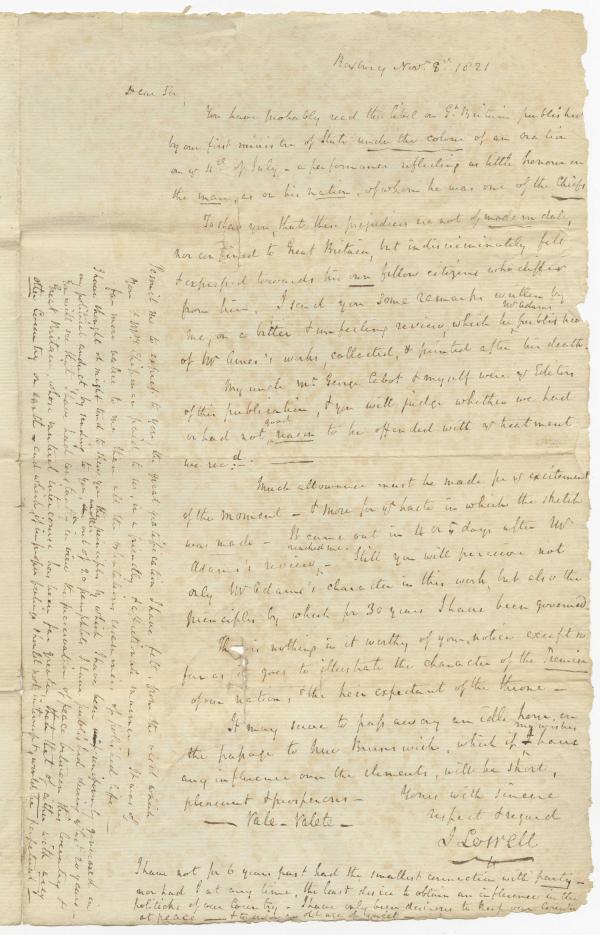 Roxbury Nov. 8th 1821
Dear Sir,
You have probably read the libel on Gt. Britain published
by our first minister of State under the colour of an oration
on ye 4th of July - a performance reflecting as little honour on
the man, as on his nation, of whom he was one of the Chiefs
To shew you, that these prejudices are not of modern date,
nor confined to Great Britain, but indiscriminately felt
& expressed towards his own fellow citizens who differ
from him - I send you some remarks written by
me, on a bitter & unfeeling review, which Mr Adams published
of Mr Ames's works, collected, & printed after his death
My uncle Mr. George Cabot & myself were ye Editors
of this publication, & you will judge whether we had
or had not good reason to be offended with ye treatment
we recd.
Much allowance must be made for ye excitement
of the moment - & more for ye haste in which the sketch
was made - It came out in 4 or 5 days after Mr
Adams's review reached me - Still you will perceive not
only Mr Adams's character in this work, but also the
principles by which for 30 years I have been governed
There is nothing in it worthy of your notice except so
far as it goes to illustrate the character of the Premier
of our nation, & the heir expectant of the throne -
It may serve to pass away an idle hour, on
the passage to New Brunswick, which if my wishes have
any influence over the elements, will be short,
pleasant & prosperous -
Yours with sincere
- Vale - Valete -
respect & regard
J Lowell
I have not for 6 years past had the smallest connection with party -
nor had I at any time, the least desire to obtain an influence in the
politicks of our Country - I have only been desirous to keep our Country
at peace - & to old age of quiet
Permit me to express to you, the great gratification I have felt, from the visit which
You & Mrs paid to us, in a friendly & affectionate manner - It was of
far more value to me than all the ostentatious ceremonies of polished life -
I have thought it might tend to shew you the principles by which I have been uniformly governed in
my political conduct by sending to you, one out of 20 pamphlets I have published during the last 20 years -
You will see that I have had constantly in view the preservation of peace between this Country &
Great Britain whose mutual intercourse has been far greater than that of either with any
other Country on earth & and which if improper feelings should not interrupt, would be perpetual -